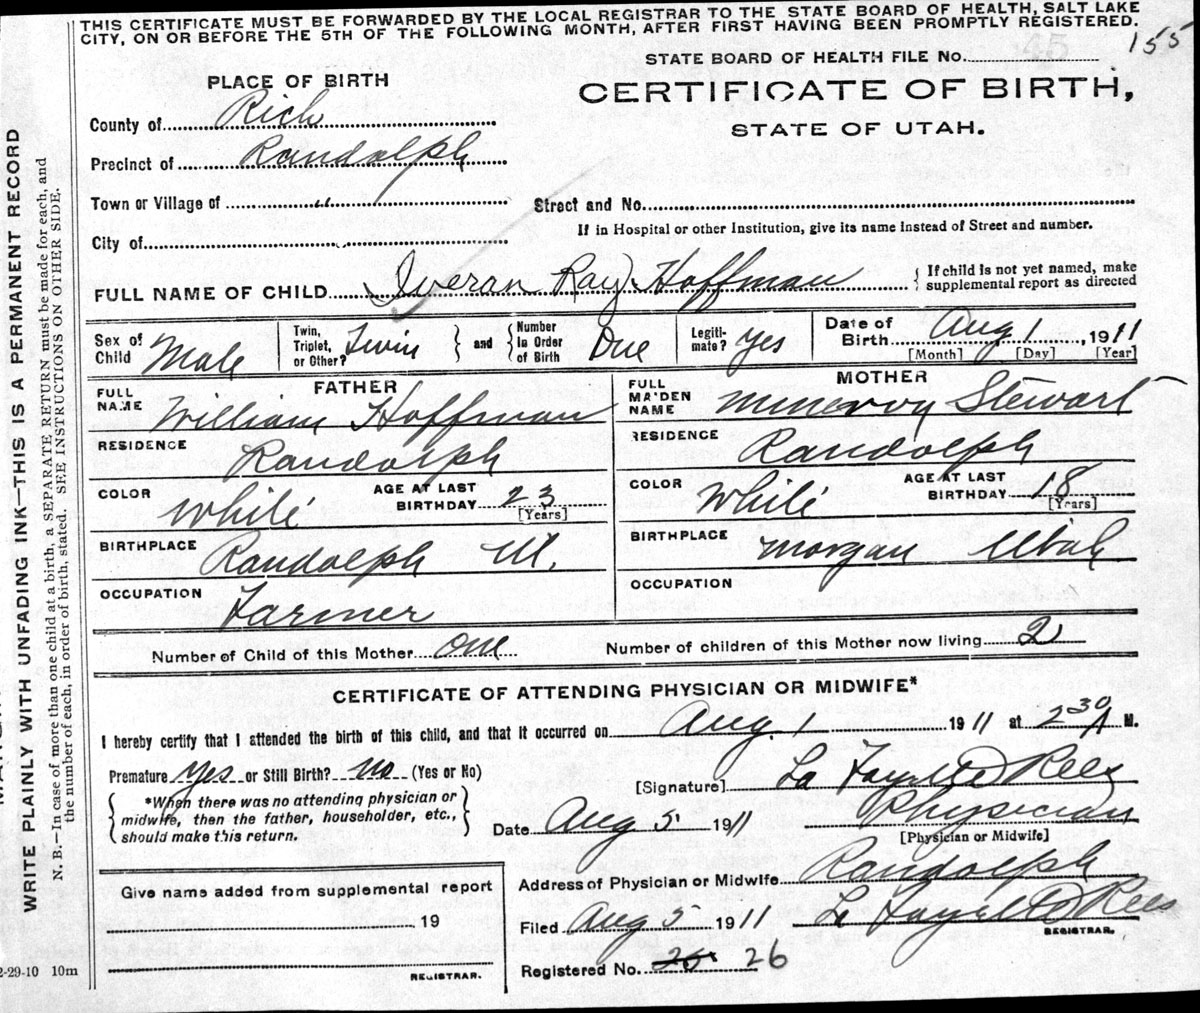 THIS CERTIFICATE MUST BE FORWARDED BY THE LOCAL REGISTRAR TO THE STATE BOARD OF HEALTH, SALT LAKE
CITY, ON OR BEFORE THE 5TH OF THE FOLLOWING MONTH, AFTER FIRST HAVING BEEN PROMPTLY REGISTERED.
155
STATE BOARD OF HEALTH FILE No.
PLACE OF BIRTH
CERTIFICATE OF BIRTH,
STATE OF UTAH.
County of Rich
Precinct of Randolph
Town or Village of "
Street and No.
City of
If in Hospital or other Institution, give its name instead of Street and number.
FULL NAME OF CHILD Iveran Ray Hoffman
{ If child is not yet named, make
supplemental report as directed
Sex of Child Male
Twin, Triplet, or Other? Twin } and { Number in Order of Birth One
Legiti-mate? yes
Date of Birth Aug 1, 1911
[Month] [Day] [Year]
FATHER
MOTHER
FULL NAME William Hoffman
FULL MAIDEN NAME Minervy Stewart
RESIDENCE Randolph
RESIDENCE Randolph
COLOR White AGE AT LAST BIRTHDAY 23 [Years]
COLOR White AGE AT LAST BIRTHDAY 18 [Years]
BIRTHPLACE Randolph Ut.
BIRTHPLACE Morgan Utah
OCCUPATION Farmer
OCCUPATION
Number of Child of this Mother One
Number of children of this Mother now living 2
CERTIFICATE OF ATTENDING PHYSICIAN OR MIDWIFE*
I hereby certify that I attended the birth of this child, and that it occurred on Aug. 1 1911 at 230 A M.
Premature yes or Still Birth? no (Yes or No)
[Signature] La Fayette Rees
{ *When there was no attending physician or
midwife, then the father, householder, etc.,
should make this return. }
Date Aug 5 1911
Physician
[Physician or Midwife]
Address of Physician or Midwife Randolph
Give name added from supplemental report
19
REGISTRAR.
Filed Aug 5 1911 La Fayette Rees
REGISTRAR.
Registered No. 25 26
WRITE PLAINLY WITH UNFADING INK—THIS IS A PERMANENT RECORD
N. B.—In case of more than one child at a birth, a SEPARATE RETURN must be made for each, and
the number of each, in order of birth, stated. SEE INSTRUCTIONS ON OTHER SIDE.
2-29-10 10m